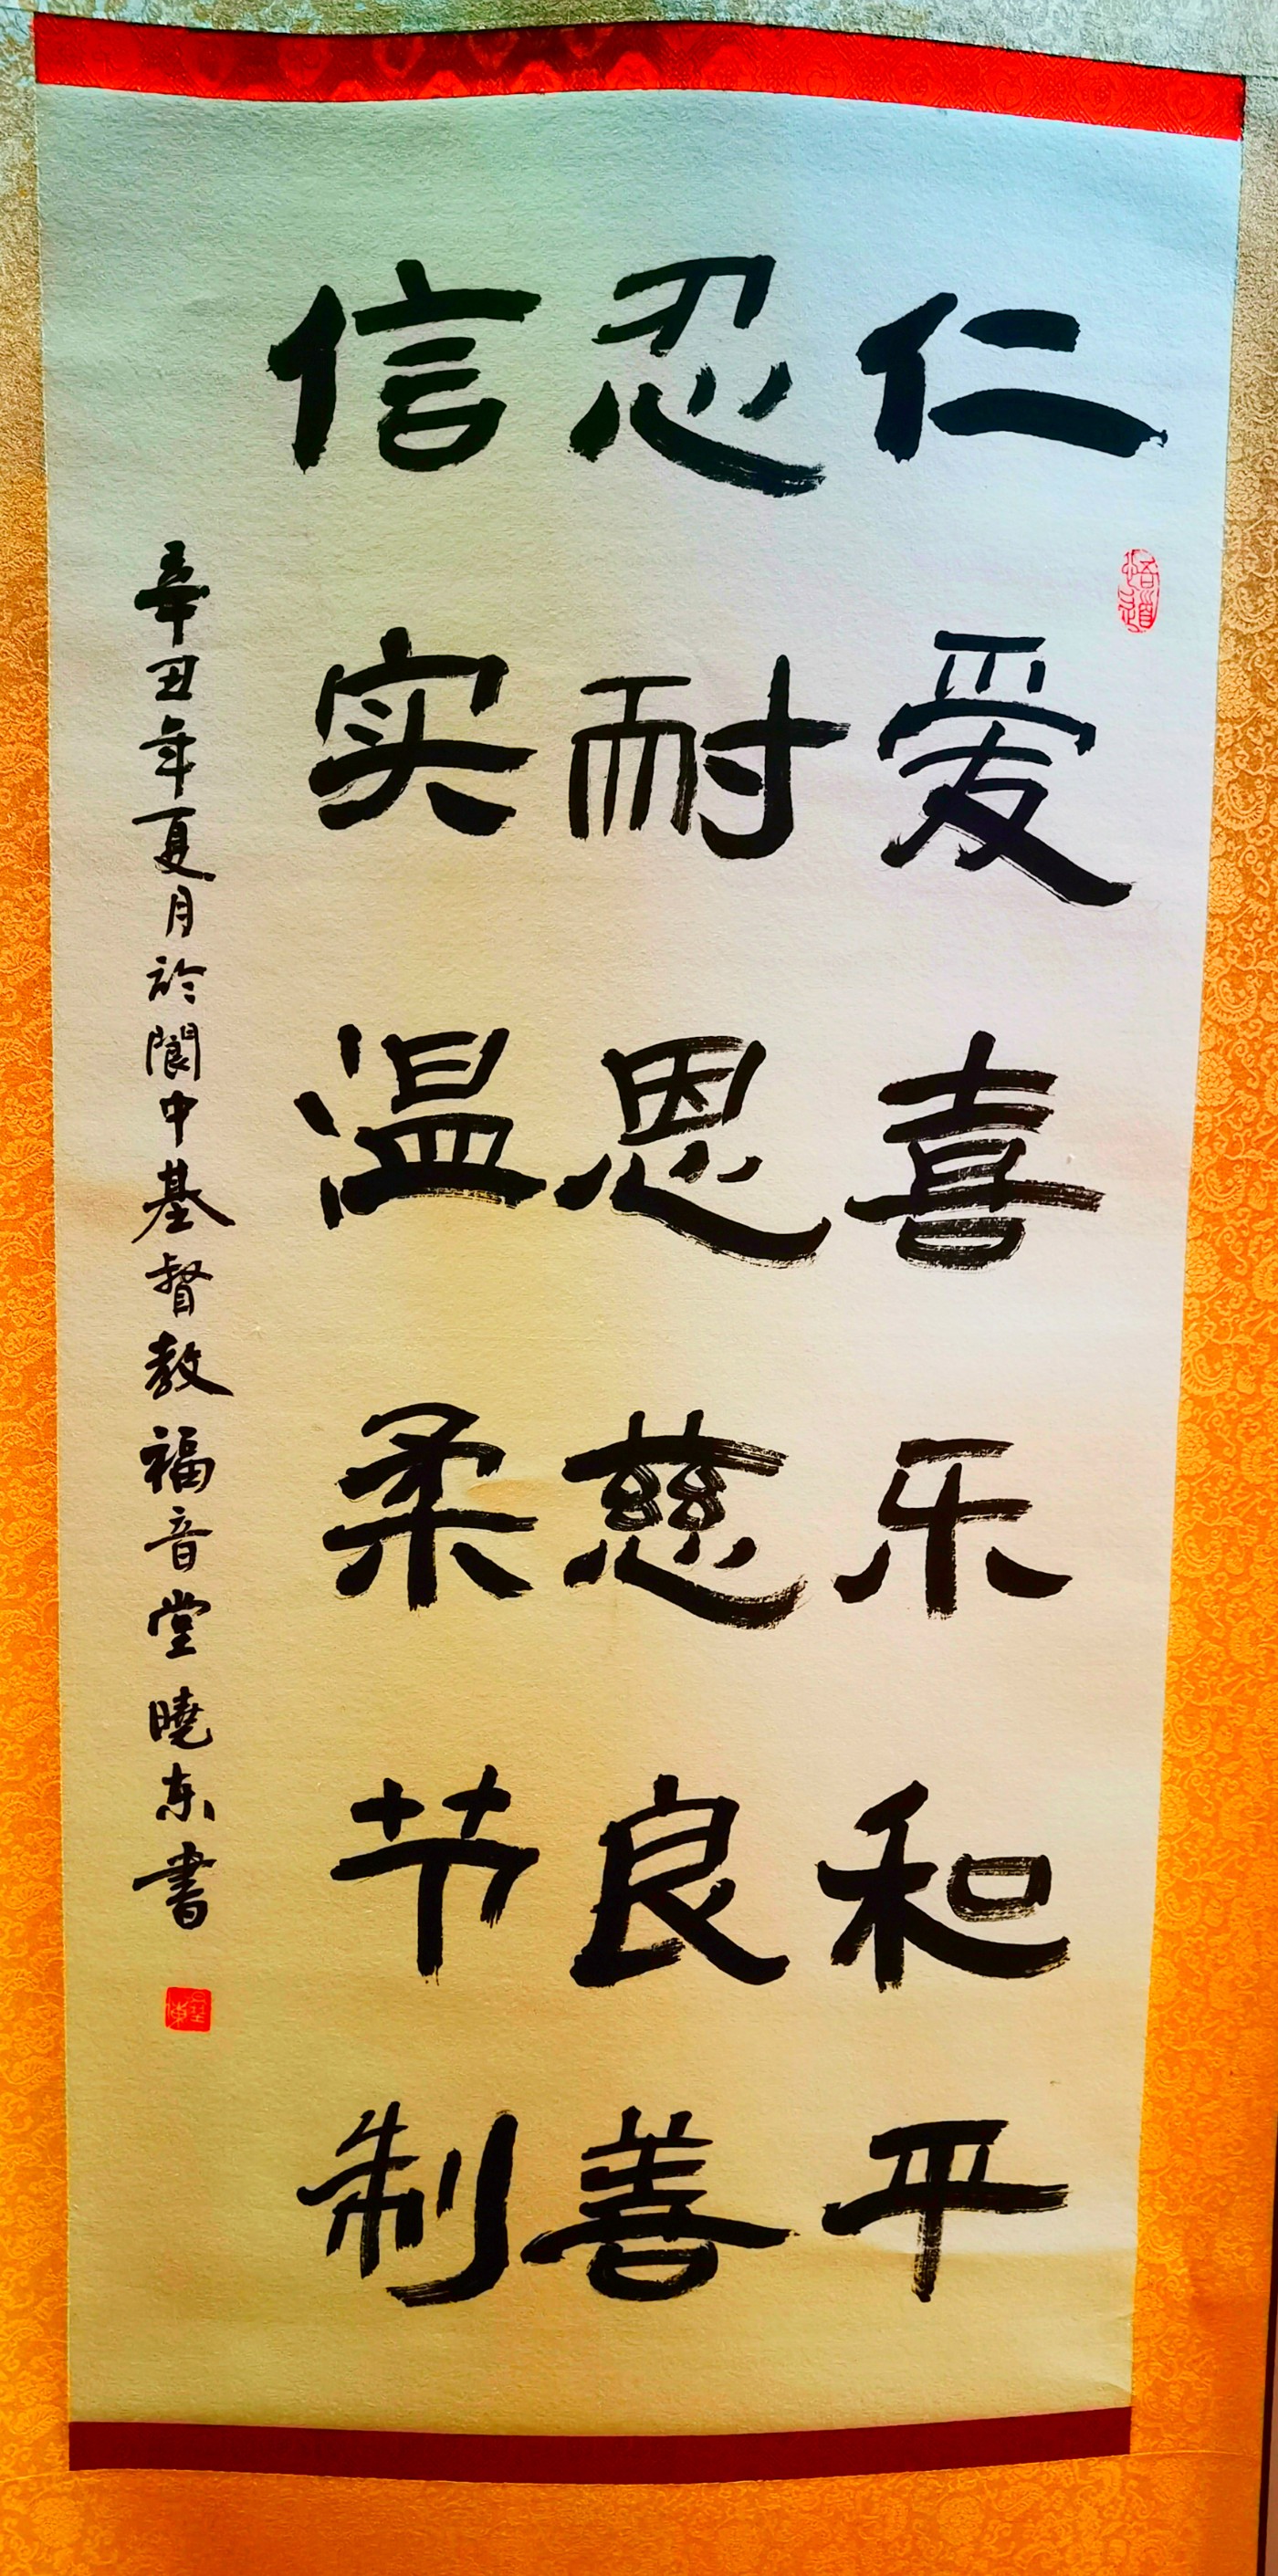 仁爱喜乐和平
忍耐恩慈良善
信实温柔节制
辛丑年夏月於阆中基督教福音堂 曉东書
悟道